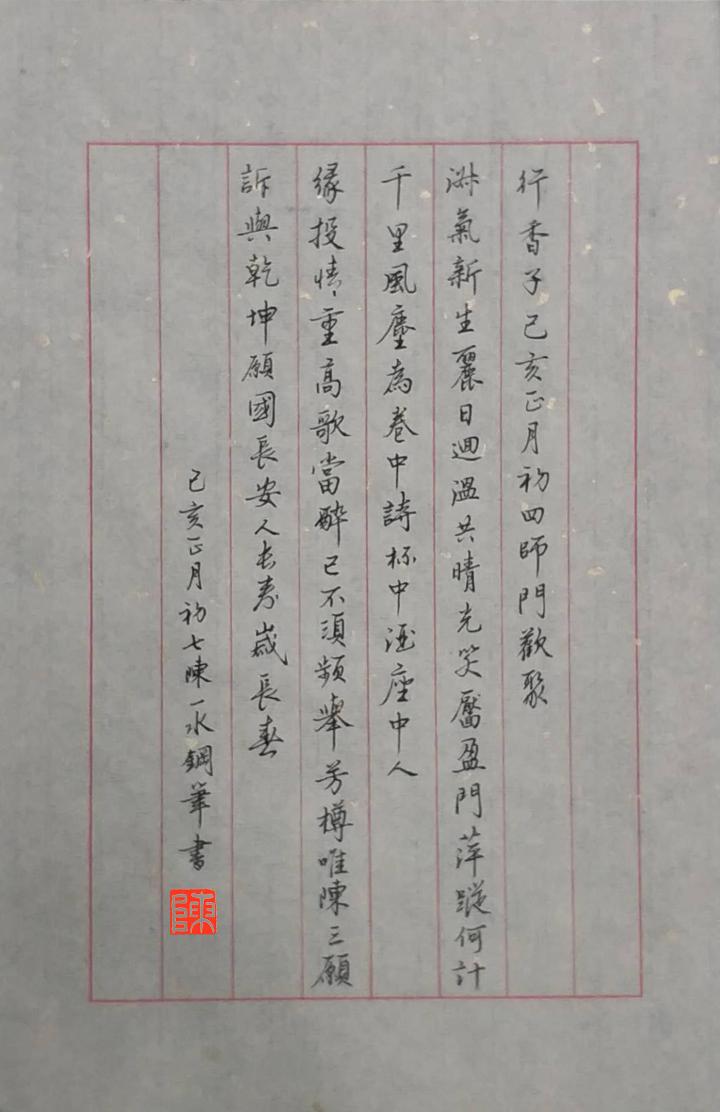 行香子己亥正月初四師門歡聚
淑氣新生麗日迴溫共晴光笑靨盈門萍蹤何計
千里風塵為卷中詩杯中酒座中人
緣投情重高歌當醉已不須頻舉芳樽唯陳三願
訴與乾坤願國長安人長壽歲長春
己亥正月初七陳一冰鋼筆書
陳